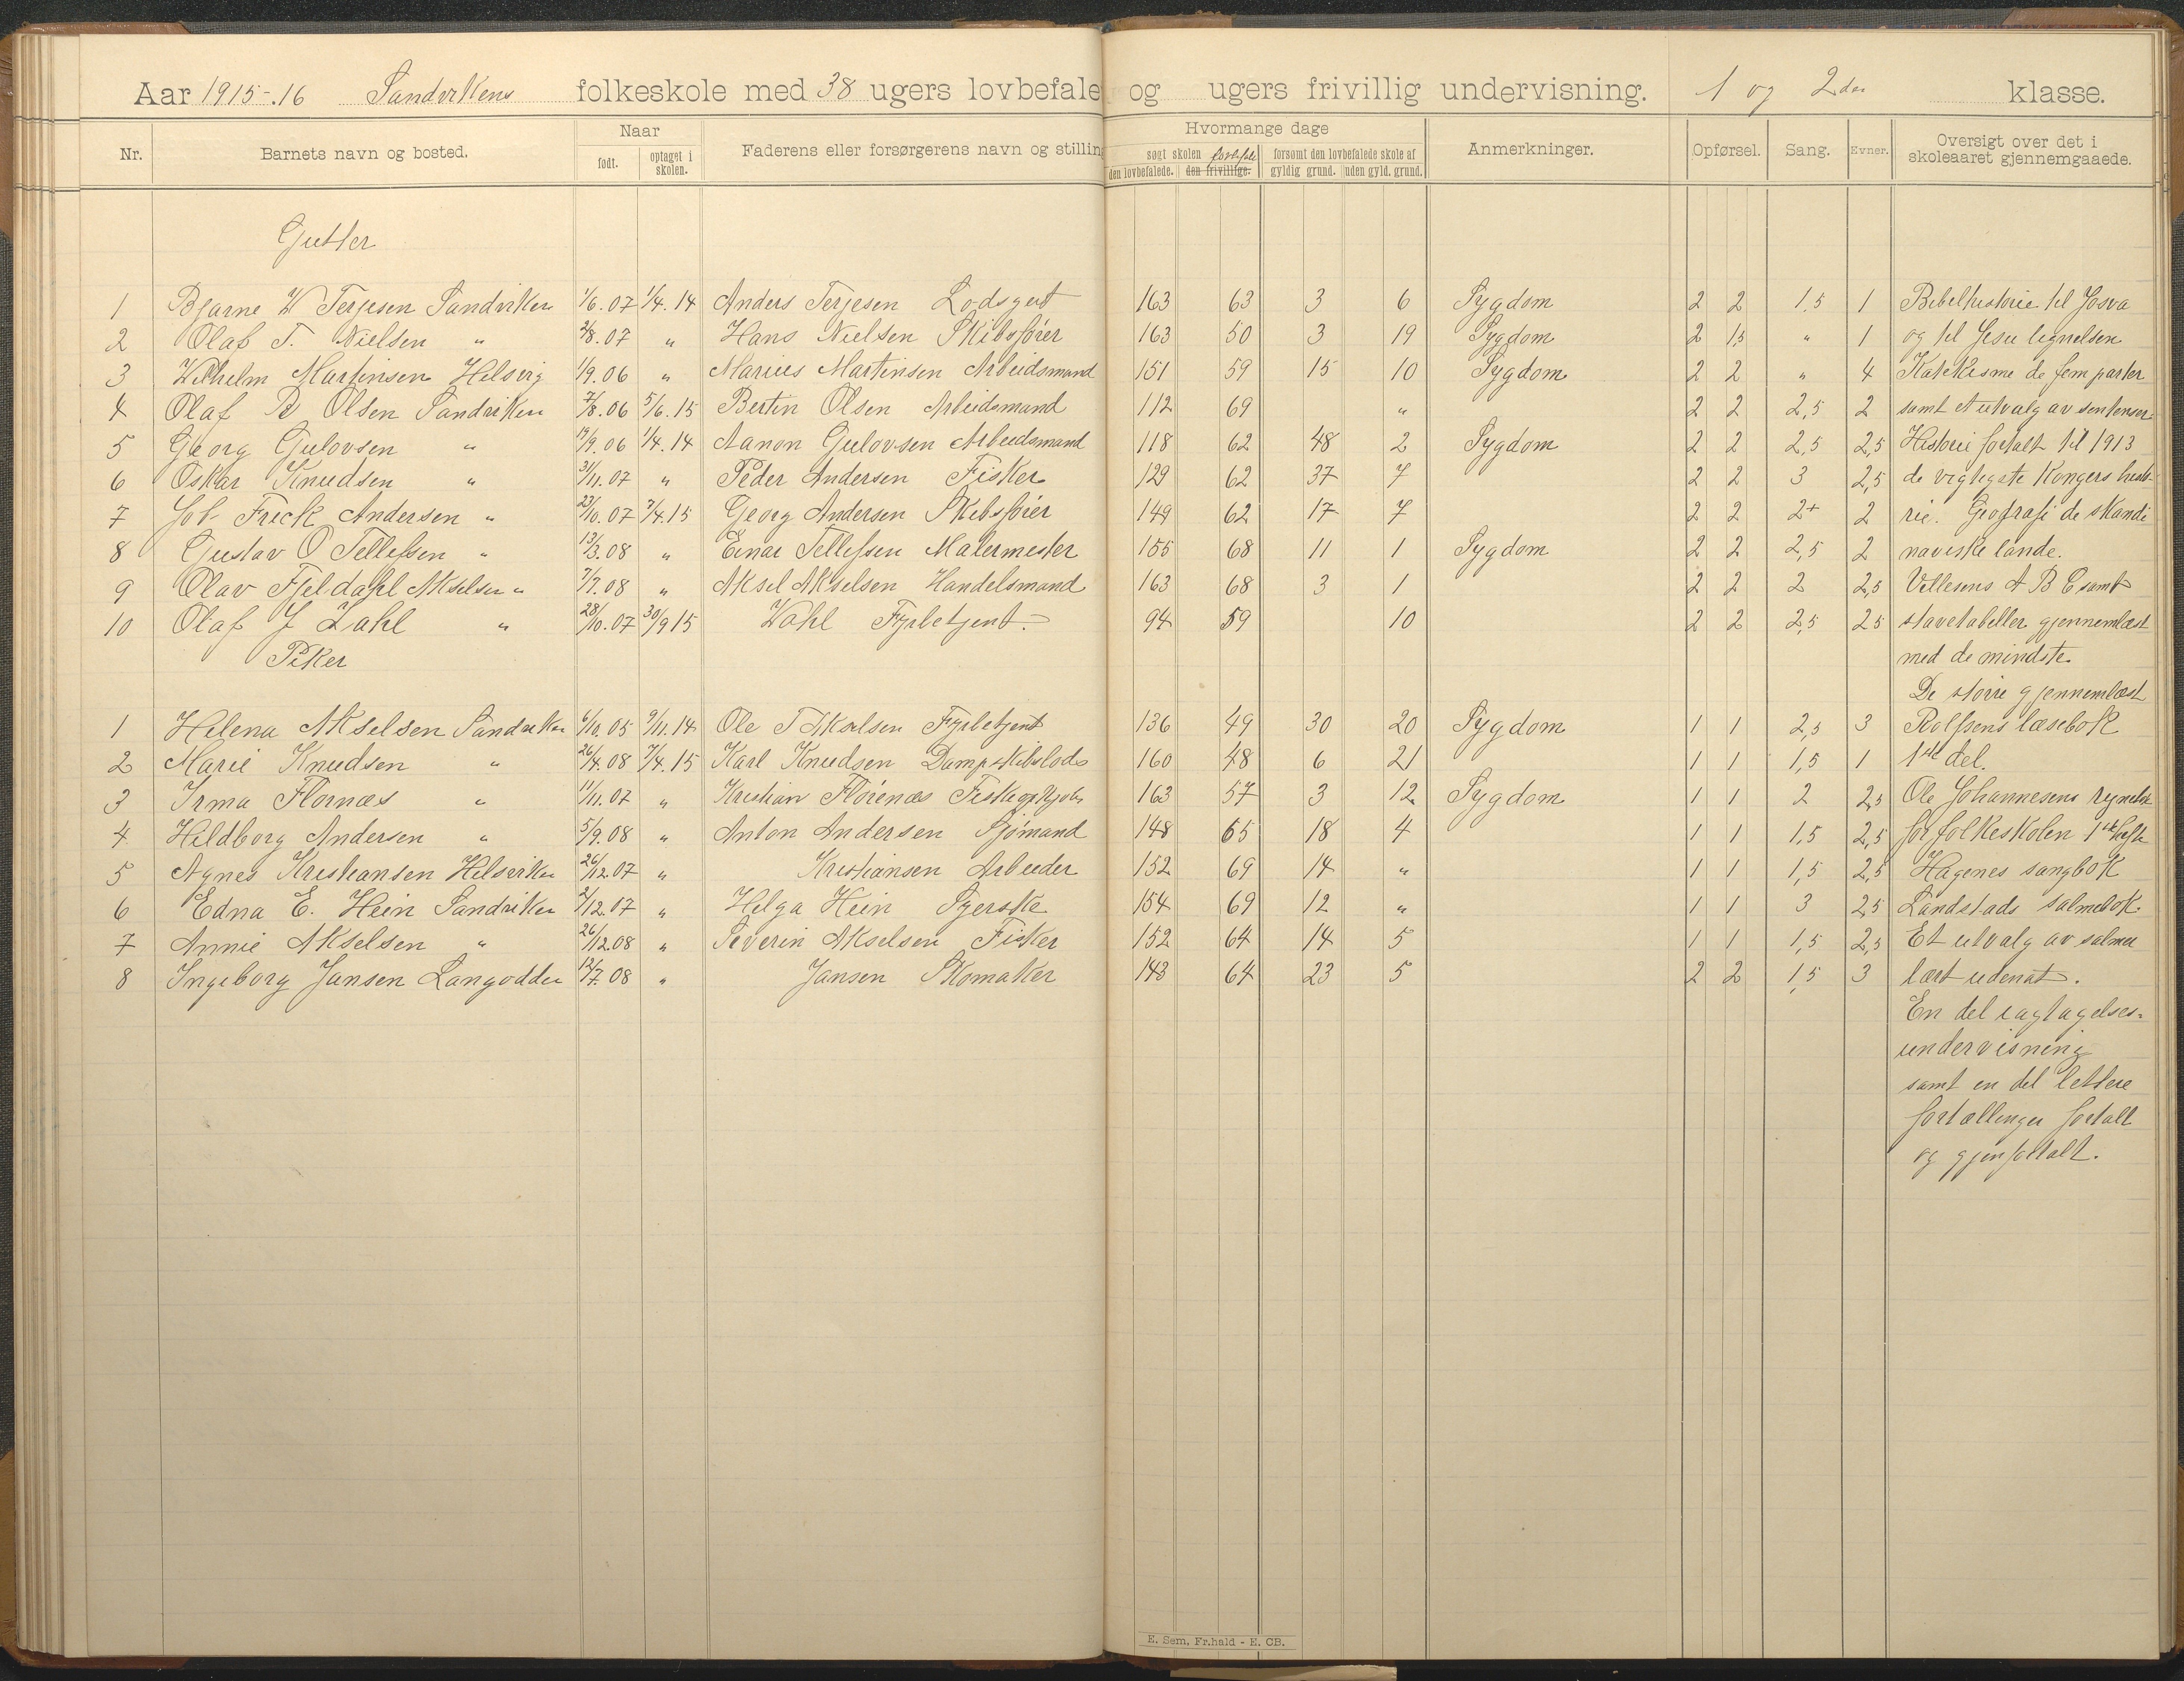 Aar 1915-.16 Sandvikens folkeskole med 38 ugers lovbefale og ugers frivillig undervisning. 1 og 2den klasse.
Nr. Barnets navn og bosted. Naar født. optaget i skolen. Faderens eller forsørgerens navn og stilling Hvormange dage søgt skolen den lovbefalede. den frivillige. forsømt den lovbefalede skole af gyldig grund. uden gyld. grund. Anmerkninger. Opførsel. Sang. Evner. Oversigt over det i skoleaaret gjennemgaaede.
Gutter
1 Bjarne W Terjesen Sandviken 1/6.07 1/4.14 Anders Terjesen Lodsgut 163 63 3 6 Sygdom 2 2 1,5 1 Bibelhistorie til Josva
2 Olaf T. Nielsen " 2/8.07 " Hans Nielsen Skibsfører 163 50 3 19 Sygdom 2 1,5 " 1 og til Jesu lignelsen
3 Wilhelm Martinsen Hilsvig 1/9.06 " Marius Martinsen Arbeidsmand 151 59 15 10 Sygdom 2 2 " 4 Katekisme de fem parter
4 Olaf B Olsen Sandviken 7/8.06 5/6.15 Bertin Olsen Arbeidsmand 112 69 " 2 2 2,5 2 samt et utvalg av sentenser.
5 Georg Gulovsen " 19/9.06 1/4.14 Aanon Gulovsen Arbeidsmand 118 62 48 2 Sygdom 2 2 2,5 2,5 Historie fortalt til 1913
6 Oskar Knudsen " 31/11.07 " Peder Andersen Fisker 129 62 37 7 2 2 3 2,5 de vigtigste Kongers histo-
7 Joh Frick Andersen " 23/10.07 7/4.15 Georg Andersen Skibsfører 149 62 17 7 2 2 2+ 2 rie. Geografi de skandi
8 Gustav O Tellefsen " 13/3.08 " Einar Tellefsen Malermester 155 68 11 1 Sygdom 2 2 2,5 2 naviske lande.
9 Olav Fjeldahl Akselsen " 7/7.08 " Aksel Akselsen Handelsmand 163 68 3 1 2 2 2 2,5 Vellesens A B C samt
10 Olaf J Zahl " 28/10.07 30/9 15 Wahl Fyrbetjent. 94 59 10 2 2 2,5 2 5 stavetabeller gjennemlæst
Piker med de mindste.
De større gjennemlæst
1 Helena Akselsen Sandviken 6/10.05 9/11.14 Ole T Akselsen Fyrbetjent 136 49 30 20 Sygdom 1 1 2,5 3 Rolfsens læsebok
2 Marie Knudsen " 26/4.08 7/4.15 Karl Knudsen Dampskibslods 160 48 6 21 1 1 1,5 1 1ste del.
3 Irma Flørnæs " 11/11.07 " Kristian Flørenæs 163 57 3 12 Sygdom 1 1 2 2,5 Ole Johannesens
4 Hildborg Andersen " 5/9.08 " Anton Andersen Sjømand 148 65 18 4 1 1 1,5 2,5 for folkeskolen 1ste hefte
5 Agnes Kristiansen Hilsviken 26/12.07 " Kristiansen Arbeider 152 69 14 " 1 1 1,5 2,5 Hagenes sangbok
6 Edna E. Hein Sandviken 2/12.07 " Helga Hein Syerske 154 69 12 " 1 1 3 2 5 Landstads salmebok.
7 Annie Akselsen " 26/12 08 " Severin Akselsen Fisker 152 64 14 5 1 1 1,5 2,5 Et utvalg av salmer
8 Ingeborg Jansen Langodden 12/7.08 " Jansen Skomaker 143 64 23 5 2 2 1,5 3 lært udenat.
En del iagtagelses-
undervisning
samt en del lettere
fortællinger fortalt
og gjenfortalt.
E. Sem, Fr.hald - E. CB.